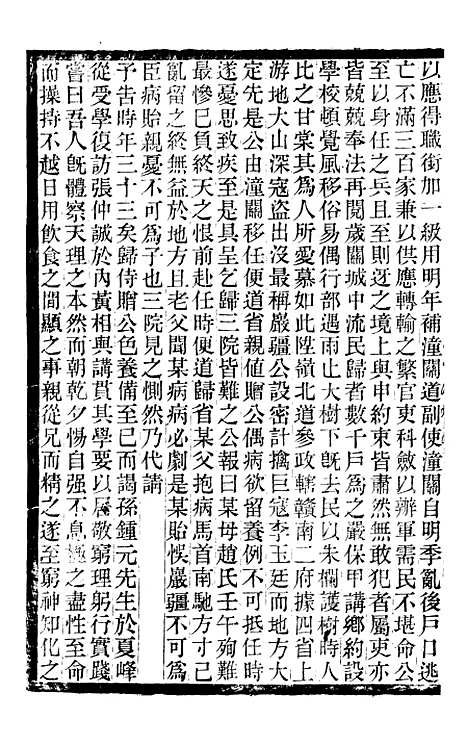 以應得職銜加一級用明年補潼關道副使潼關自明季亂後戶口逃
亡不滿三百家兼以供應轉輸之繁官吏科斂以辦軍需民不堪命公
至以身任之兵且至則迓之境上與申約束皆肅然無敢犯者屬吏亦
皆兢兢奉法再閱歲關城中流民歸者數千戶爲之嚴保甲講鄉約設
學校頓覺風移俗易偶行部遇雨止大樹下旣去民以朱欄護樹時人
比之甘棠其爲人所愛慕如此陞嶺北道參政轄贛南二府據四省上
游地大山深寇盜出沒最稱巖疆公設密計擒巨寇李玉廷而地方大
定先是公由潼關移任便道省親值贈公偶病欲留養例不可抵任時
遂憂思致疾于是具呈乞歸三院皆難之公報曰某母趙氏壬午殉難
最慘已負終天之恨前赴任時便道歸省某父抱病馬首南馳方寸已
亂留之終無益於地方且老父聞某病病必劇是某貽悞巖疆不可爲
臣病貽親憂不可爲子也三院見之惻然乃代請
予告時年三十三矣歸侍贈公色養備至已而謁孫鍾元先生於夏峰
從受學復訪張仲誠於內黃相與講貫其學要以居敬窮理躬行實踐
嘗曰吾人旣體察天理之本然而朝乾夕惕自强不息極之盡性至命
而操持不越日用飲食之間顯之事親從兄而精之遂至窮神知化之